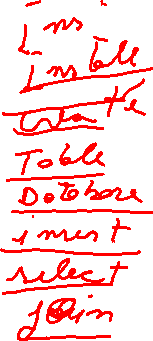 Ins
Install
Create
Table
Database
insert
select
join